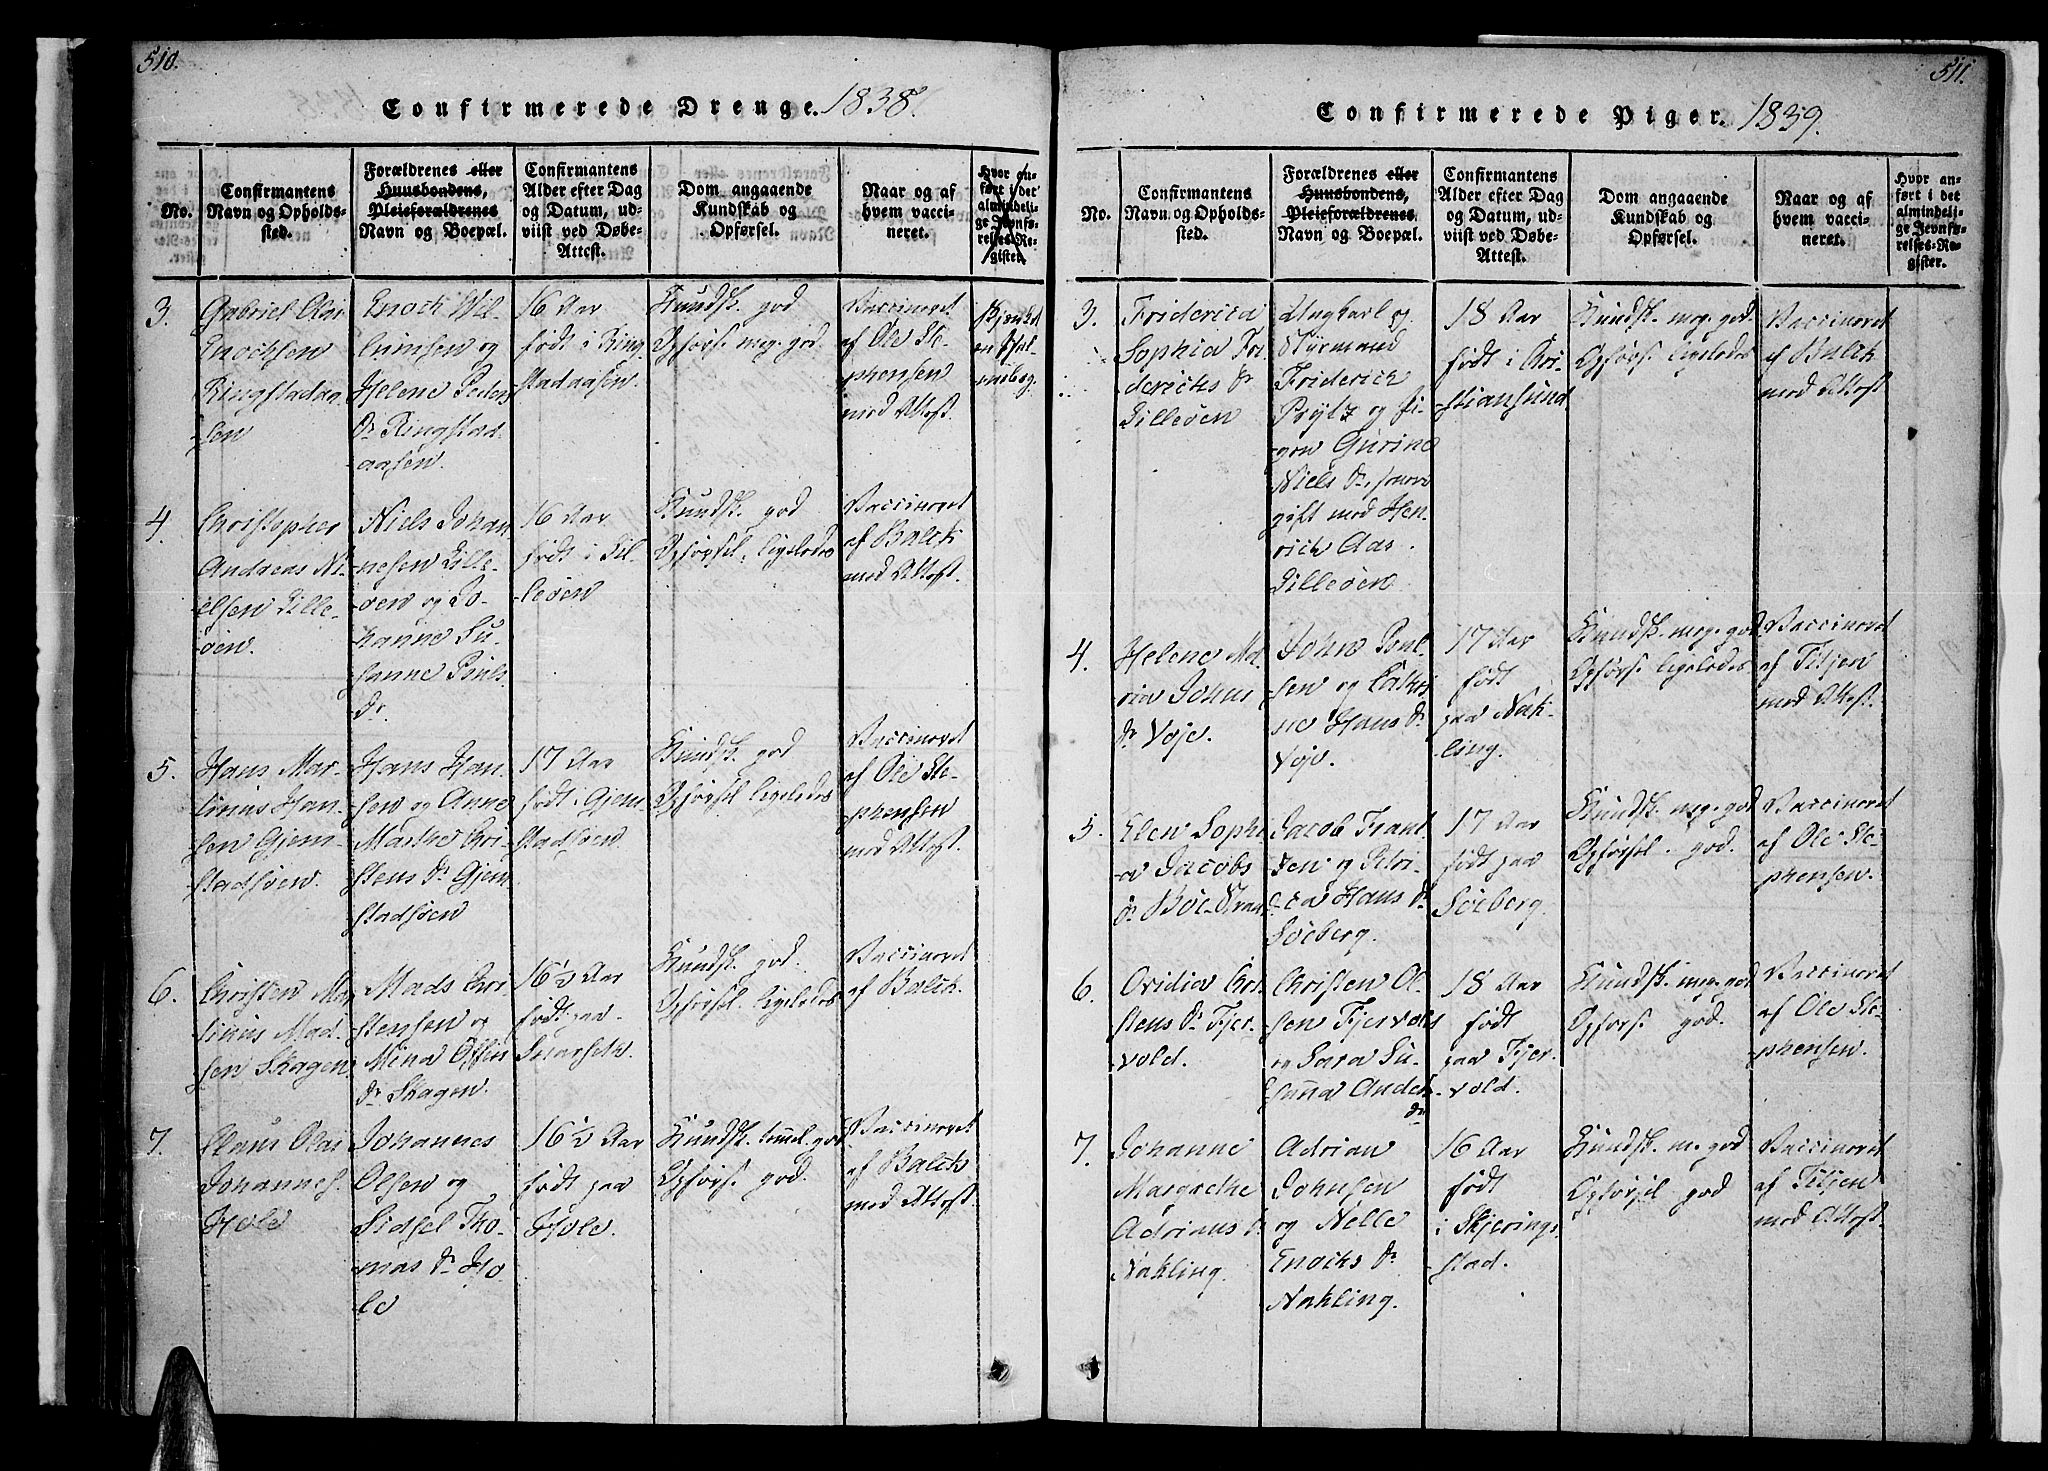 510.
Confirmerede Drenge. 1838
No.
Confirmantens
Navn og Opholds-
sted.
Forældrenes eller
Huusbondens,
Pleieforældrenes
Navn og Boepæl.
Confirmantens
Alder efter Dag
og Datum, ud-
viist ved Døbe-
Attest.
Dom angaaende
Kundskab og
Opførsel.
Naar og af
hvem vacci-
neret.
Hvor an-
ført i det
almindeli-
ge Jevnfø-
relses-Re-
gister.
3.
Gabriel
Enochsen
Ringstadaa-
sen
Enoch Wil-
lumsen og
Helene Peders
Dr Ringstad-
aasen.
16 Aar
født i Ring-
stadaasen.
Kundsk. god
Opførs. meg. god
Vaccineret
af Ole Ste-
phensen
med Attest.
4.
Christopher
Andreas Ni-
elsen Lille-
øen.
Niels Johan-
nesen Lille-
øen og Jo-
hanne Su-
sanne Pouls
Dr.
16 Aar
født i Lil-
leøen
Kundsk. god
Opførsel ligeledes
Vaccineret
af Balck
med Attest.
5.
Hans Mar-
tinius Han-
sen Gjem-
stadsøen.
Hans Han-
sen og Anne
Marthe Chri-
stens Dr Gjem-
stadsøen
17 Aar
født i Gjem-
stadsøen
Kundsk. god
Opførsel ligeledes
Vaccineret
af Ole Ste-
phensen
med Attest.
6.
Christen Mar-
tinius Mad-
sen Skagen.
Mads Chri-
stensen og
Mina Offers
Dr Skagen.
16½ Aar
født paa
Snarseth.
Kundsk. god.
Opførsel ligeledes
Vaccineret
af Balck.
7.
Claus Olai
Johannes.
Hole
Johannes
Olsen og
Sidsel Tho-
mas Dr Ho-
le
16½ Aar
født paa
Hole.
Kundsk. temel. god
Opførs. god.
Vaccineret
af Balck
med Attest.
511.
Confirmerede Piger. 1839.
No.
Confirmantens
Navn og Opholds-
sted.
Forældrenes eller
Huusbondens,
Pleieforældrenes
Navn og Boepæl.
Confirmantens
Alder efter Dag
og Datum, ud-
viist ved Døbe-
Attest.
Dom angaaende
Kundskab og
Opførsel.
Naar og af
hvem vacci-
neret.
Hvor an-
ført i det
almindeli-
ge Jevnfø-
relses-Re-
gister.
3.
Friderica
Sophia Fri-
dericks Dr
Lilleøen
Ungkarl og
Styrmand
Friderich
Prytz og Pi-
gen Gurine
Niels Dr,
gift med Hen-
rich Aas.
Lilleøen
18 Aar
født i Chri-
stiansund
Kundsk. meg. god
Opførs. ligeledes
Vaccineret
af Balck
med Attest
4.
Helene Ma-
ria Johns
Dr Voje.
John Poul-
sen og Cathri-
ne Hans Dr
Voje.
17 Aar
født
paa Nak-
ling.
Kundsk. meg. god
Opførs. ligeledes
Vaccineret
af Tiljen
med Attest.
5.
Elen Sophi-
a Jacobs
Dr
Jacob Frant-
sen og Petri-
ca Hans Dr
Søeberg.
17 Aar
født paa
Søeberg.
Kundsk. meg. god
Opførsel. god.
Vaccineret
af Ole Ste-
phensen.
6.
Ovidia Chri-
stens Dr Fjer-
vold.
Christen Ol-
sen Fjervold
og Sara Su-
sanna Anders
Dr
18 Aar
født
paa Fjer-
vold.
Kundsk. meg. god
Opførs. god.
Vaccineret
af Ole Ste-
phensen.
7.
Johanne
Margrethe
Adrians Dr
Nakling.
Adrian
Johnsen
og Nelle
Enochs Dr
Nakling.
16 Aar
født
i Skjerings-
stad.
Kundsk. m. god
Opførsel god
Vaccineret
af Tiljen
med Attest.